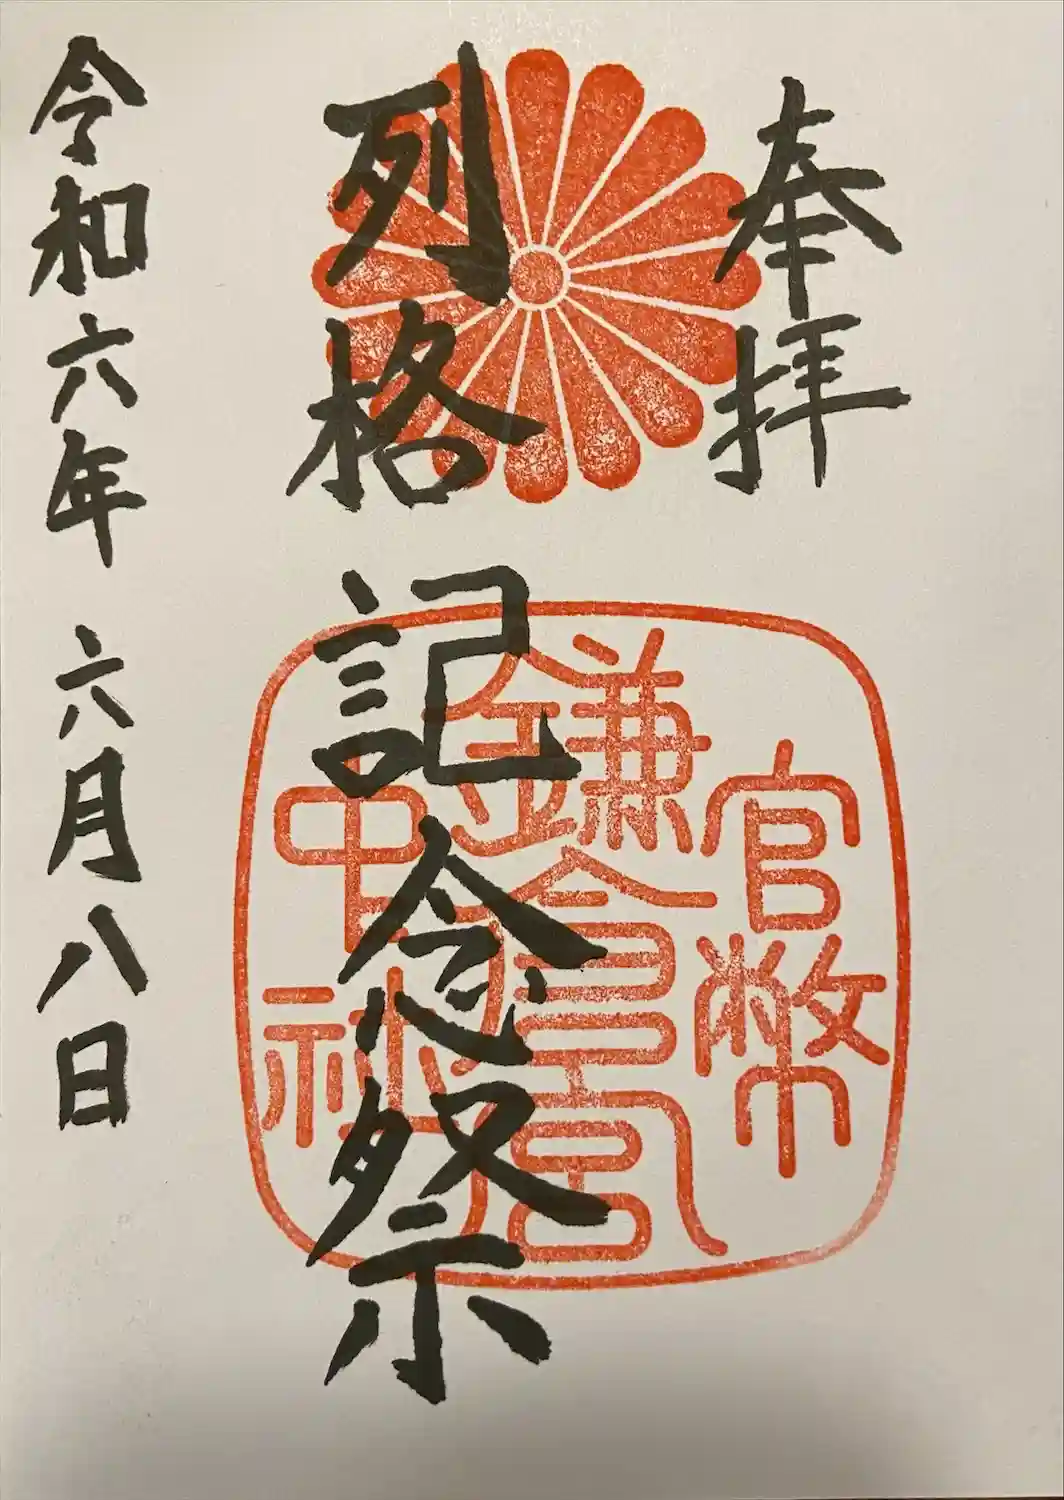 奉拝
列格記念祭
官幣
鎌倉宮
中社
令和六年六月八日